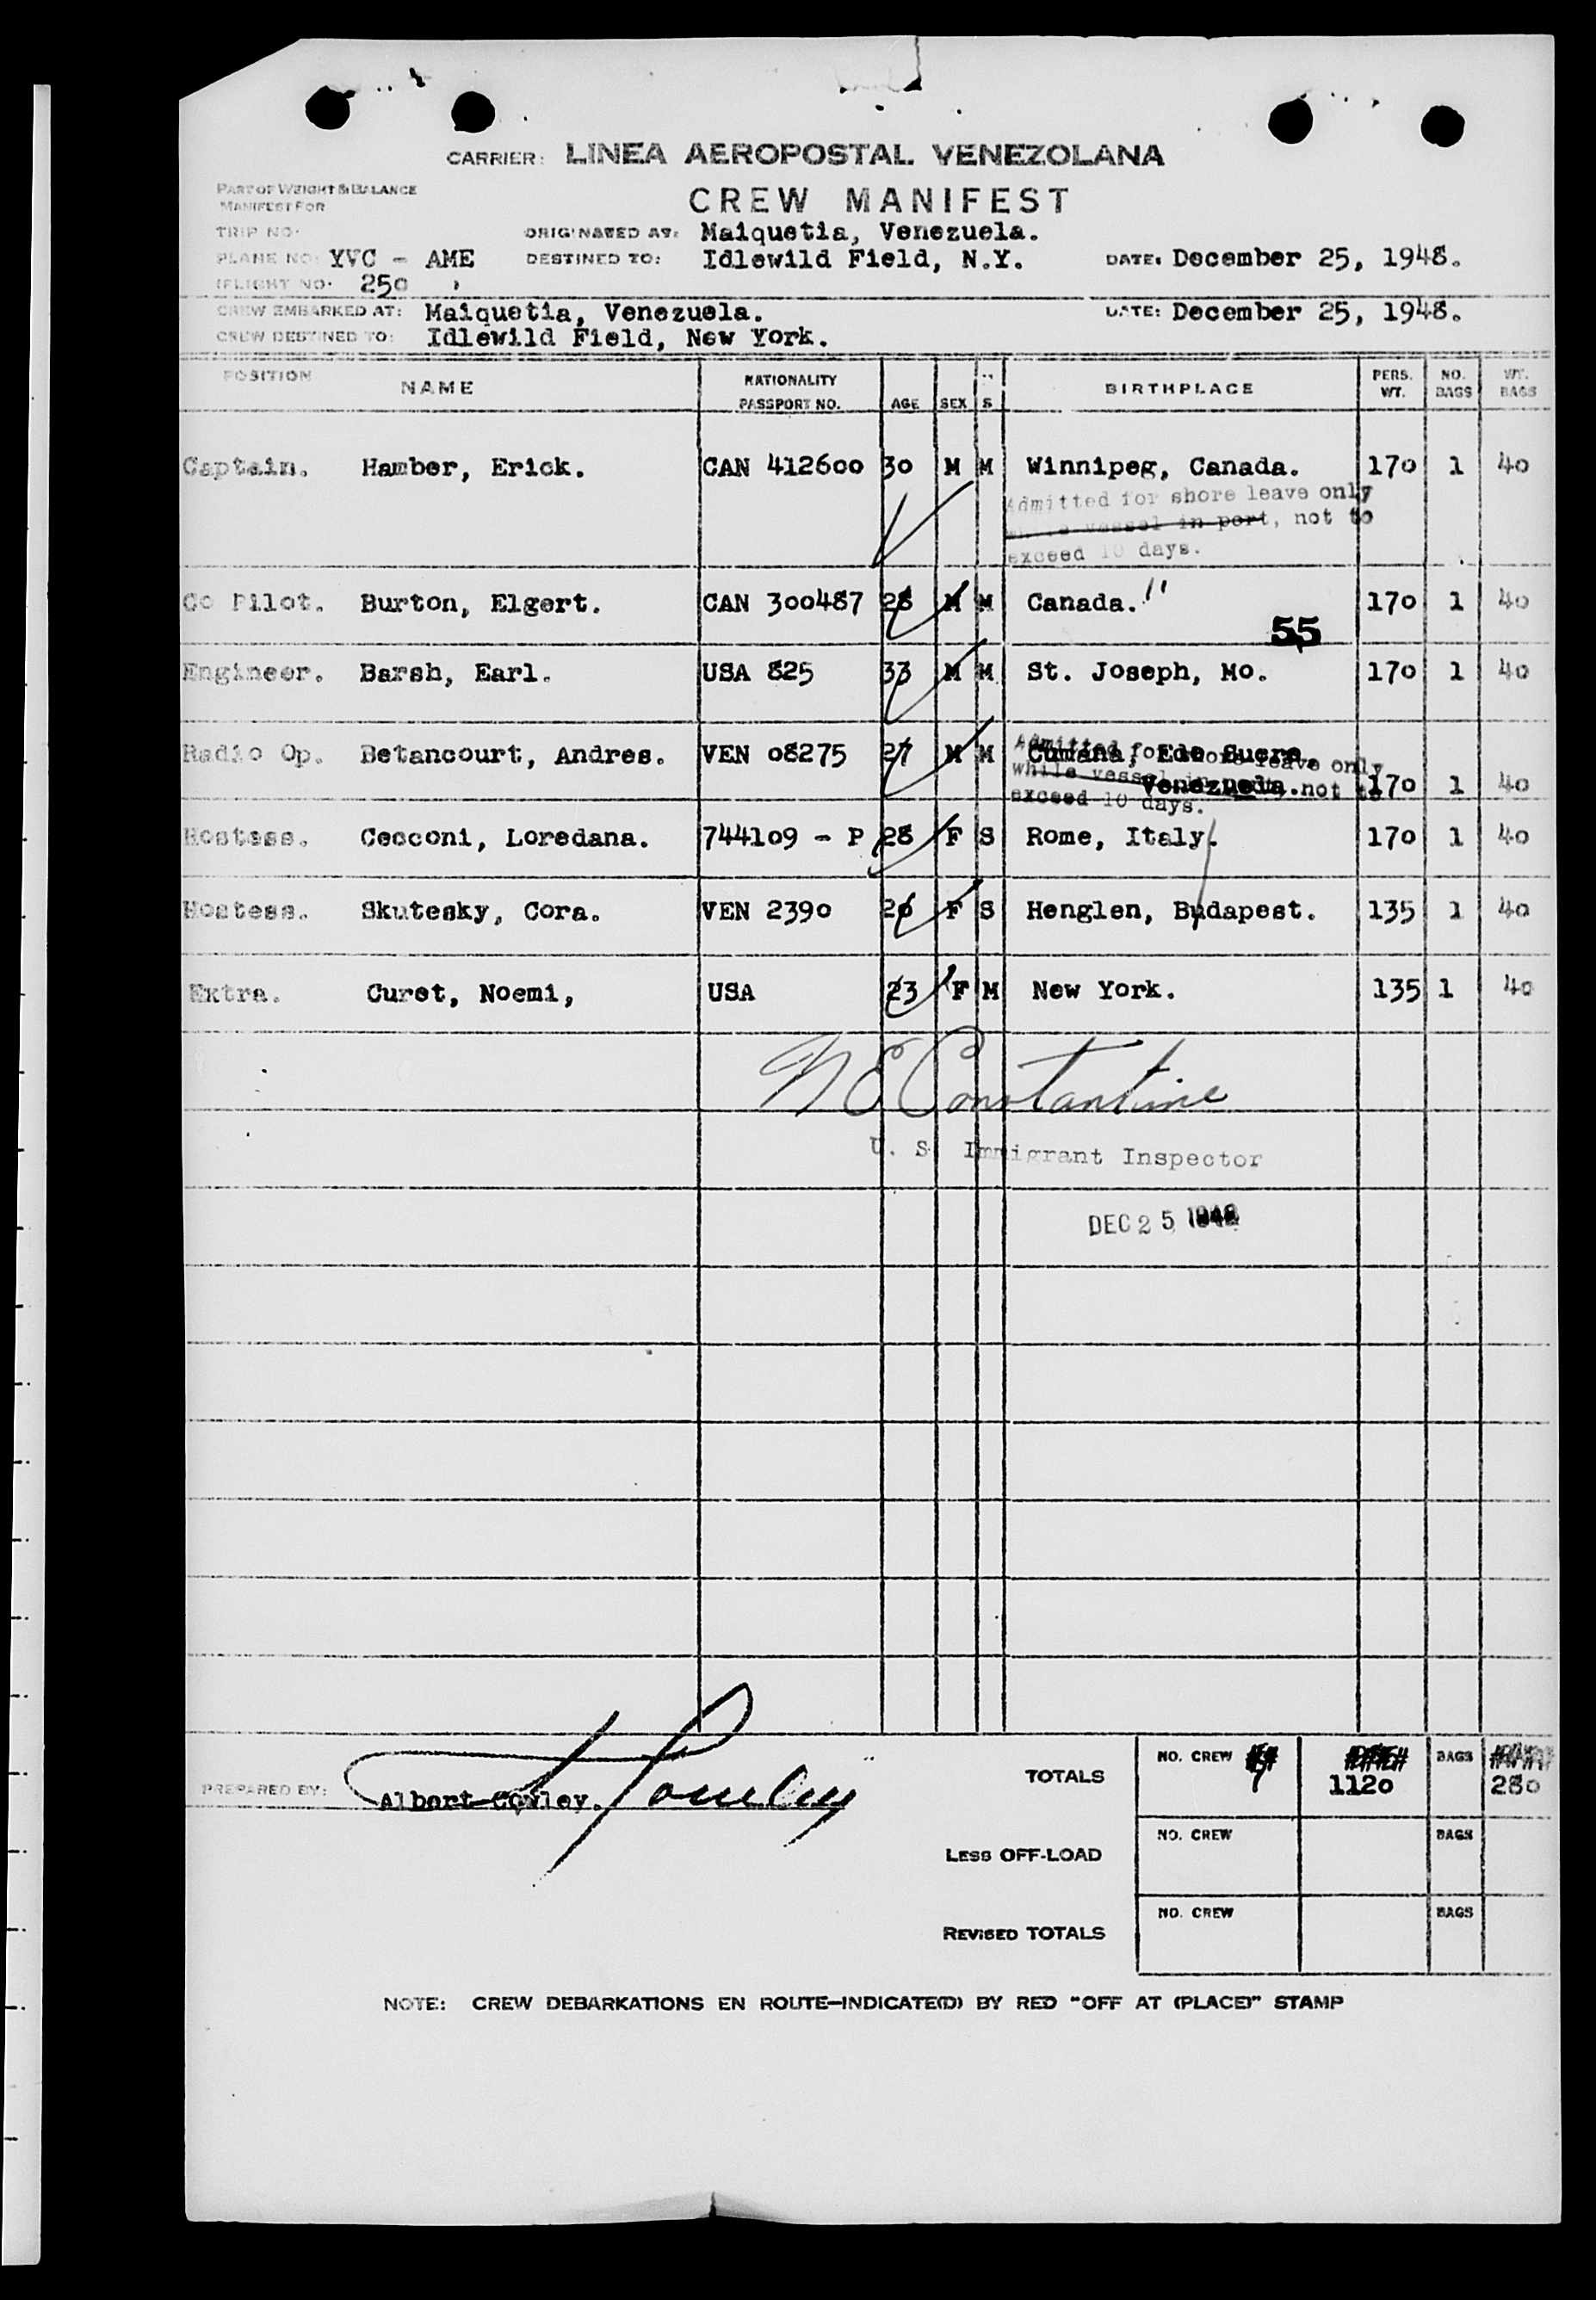 CARRIER: LINEA AEROPOSTAL VENEZOLANA
PART OF WEIGHT & BALANCE
MANIFEST FOR
CREW MANIFEST
TRIP NO. ORIGINATED AT: Maiquetia, Venezuela.
PLANE NO: YVC - AME DESTINED TO: Idlewild Field, N.Y. DATE: December 25, 1948.
FLIGHT NO. 250
CREW EMBARKED AT: Maiquetia, Venezuela. DATE: December 25, 1948.
CREW DESTINED TO: Idlewild Field, New York.
POSITION NAME NATIONALITY PASSPORT NO. AGE SEX S BIRTHPLACE PERS. WT. NO. BAGS WT. BAGS
Captain. Hamber, Erick. CAN 412600 30 M M Winnipeg, Canada. 170 1 40
Admitted for shore leave only
while vessel in port, not to
exceed 10 days.
Co Pilot. Burton, Elgert. CAN 300487 28 M M Canada. " 170 1 40
55
Engineer. Barsh, Earl. USA 825 33 M M St. Joseph, Mo. 170 1 40
Radio Op. Betancourt, Andres. VEN 08275 27 M M Cumana, Edo Sucre,
Venezuela. 170 1 40
Admitted for shore leave only
while vessel in port, not to
exceed 10 days.
Hostess. Cecconi, Loredana. 744109 - P 28 F S Rome, Italy. 170 1 40
Hostess. Skutesky, Cora. VEN 2390 26 F S Henglen, Budapest. 135 1 40
Extra. Curet, Noemi, USA 23 F M New York. 135 1 40
N E Constantine
U. S. Immigrant Inspector
DEC 25 1948
PREPARED BY: Albert Conley.
TOTALS NO. CREW 7 1120 BAGS 280
LESS OFF-LOAD NO. CREW BAGS
REVISED TOTALS NO. CREW BAGS
NOTE: CREW DEBARKATIONS EN ROUTE—INDICATE(D) BY RED "OFF AT (PLACE)" STAMP